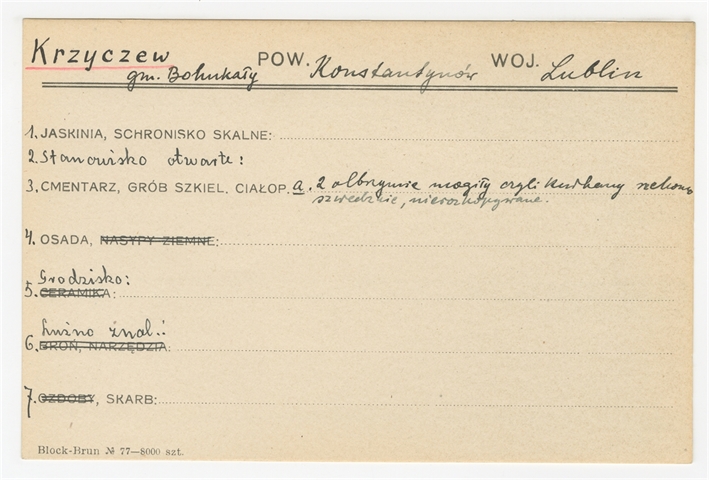 Krzyczew POW. Konstantynów WOJ. Lublin
gm. Bohukały
1. JASKINIA, SCHRONISKO SKALNE:
2. Stanowisko otwarte:
3. CMENTARZ, GRÓB SZKIEL, CIAŁOP. a. 2 olbrzymie mogiły czyli kurhany rzekomo
szwedzkie, nierozkopywane.
4. OSADA, NASYPY ZIEMNE:
Grodzisko:
5. CERAMIKA:
Luźno znal.:
6. BROŃ, NARZĘDZIA:
7. OZDOBY, SKARB:
Block-Brun № 77—8000 szt.